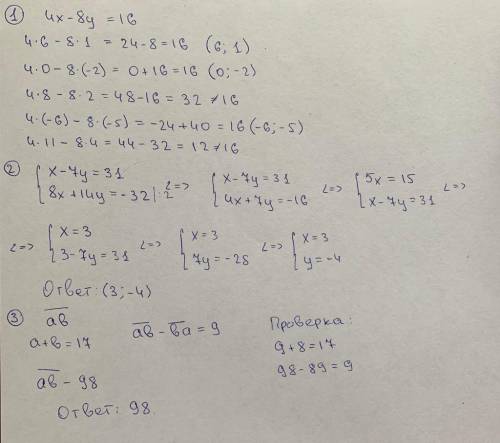 ① 4x-8y = 16
4·6-8·1 = 24-8=16 (6; 1)
4·0-8·(-2) = 0+16=16 (0;-2)
4·8-8·2=48-16=32 ≠16
4·(-6)-8·(-5)=-24+40=16(-6;-5)
4·11-8·4=44-32=12≠16
② { x-7y=31 8x+14y=-32|:2 <=> { x-7y=31 4x+7y=-16 <=> { 5x=15 x-7y=31 <=>
<=> { x=3 3-7y=31 <=> { x=3 7y=-28 <=> { x=3 y=-4
Ответ: (3;-4)
③ ab
a+b=17
ab-ba=9
ab-98
Ответ: 98.
Проверка:
9+8=17
98-89=9